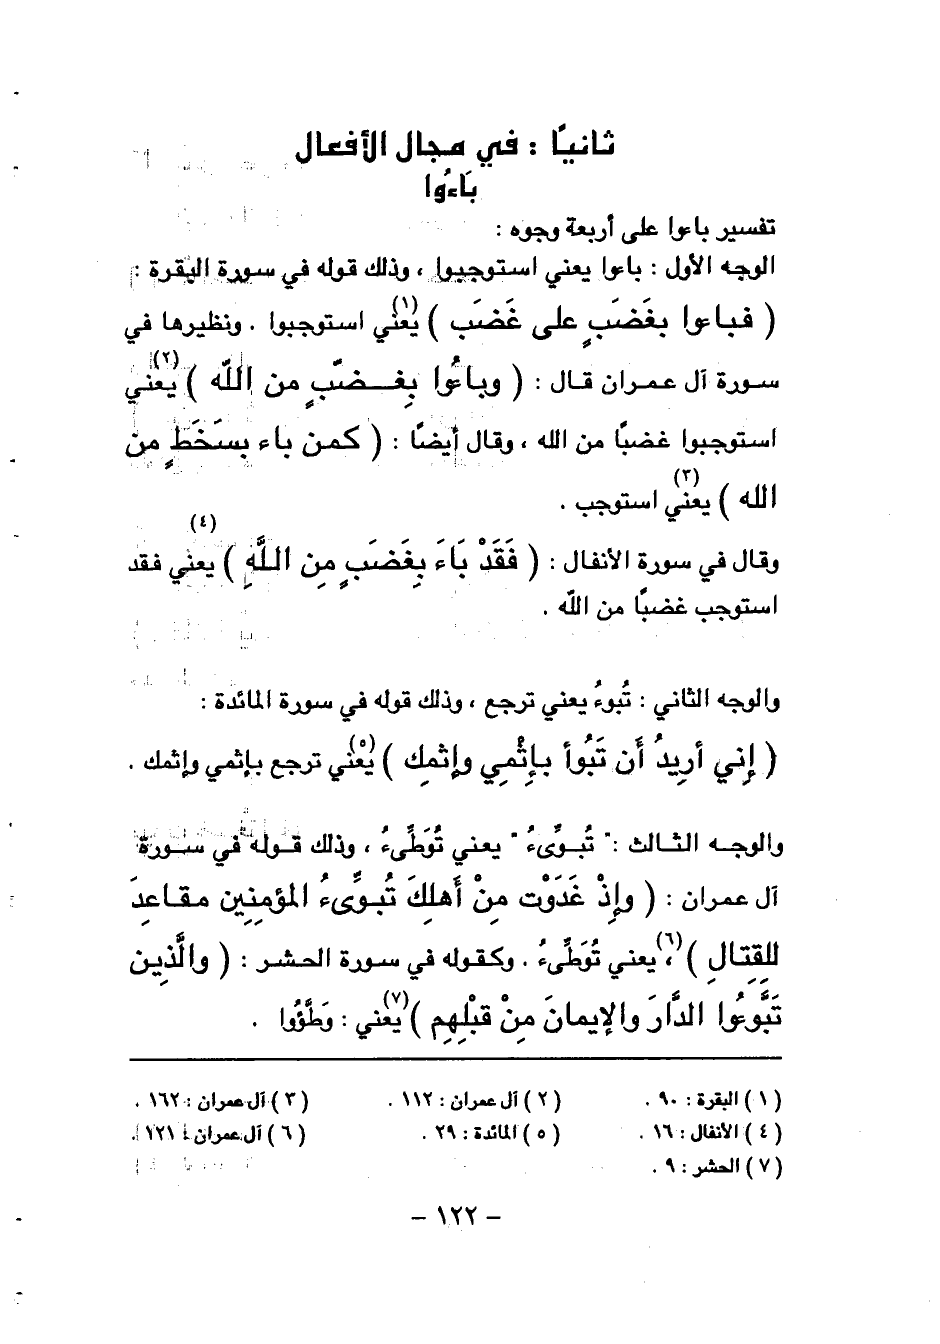 ثانيًا : في مجال الأفعال
بَاءُوا
تفسير باءوا على أربعة وجوه :
الوجه الأول : باءوا يعني استوجبوا ، وذلك قوله في سورة البقرة :
( فباءوا بغَضَبٍ على غَضَب )(١) يعني استوجبوا . ونظيرها في
سورة آل عمران قال : ( وباءُوا بِغـضَبٍ من اللَّه )(٢) يعني
استوجبوا غضبًا من الله ، وقال أيضًا : ( كمن باء بسَخَطٍ من
الله )(٣) يعني استوجب .
وقال في سورة الأنفال : ( فَقَدْ بَاءَ بِغَضَبٍ مِن اللَّهِ )(٤) يعني فقد
استوجب غضبًا من اللَّه .
والوجه الثاني : تُبوءُ يعني ترجع ، وذلك قوله في سورة المائدة :
( إِني أُرِيدُ أَن تَبُوأ بإِثْمِي وإِثمِك )(٥) يَعْني ترجع بإثمي وإثمك .
والوجـه الثـالث : " تُبـوِّىءُ " يعني تُوَطِّىءُ ، وذلك قـوله في سـورة
آل عمران : ( وإِذْ غَدَوْت مِنْ أَهلِكَ تُبـوِّىءُ المُؤمِنِين مقـاعِدَ
للِقِتالِ )(٦)، يعني تُوَطِّىءُ . وكـقوله في سورة الحشـر : ( والَّذِين
تَبَوَّءُوا الدَّارَ والإيمانَ مِنْ قبْلِهِم )(٧) يَعني : وَطَّؤُوا .
( ١ ) البقرة : ٩٠ . ( ٢ ) آل عمران : ١١٢ . ( ٣ ) آل عمران : ١٦٢ .
( ٤ ) الأنفال : ١٦ . ( ٥ ) المائدة : ٢٩ . ( ٦ ) آل عمران : ١٢١ .
( ٧ ) الحشر : ٩ .
– ١٢٢ –